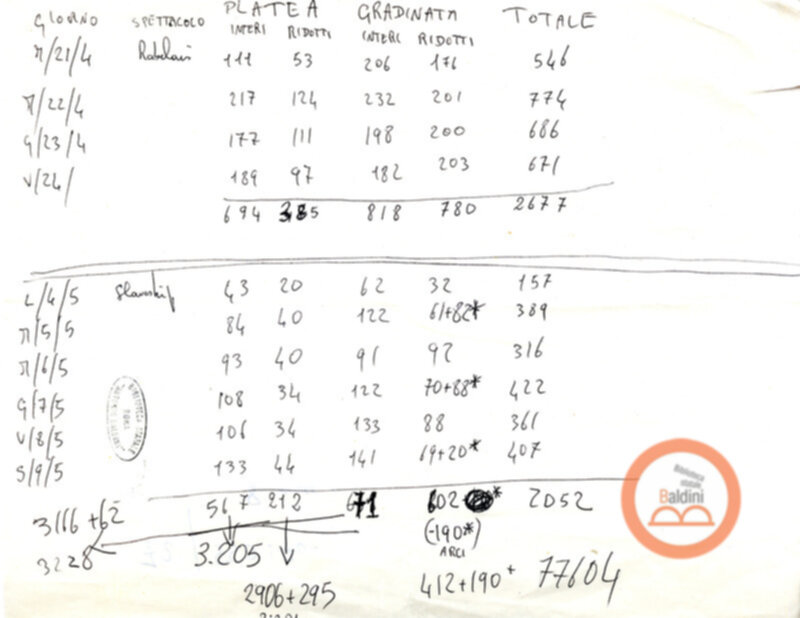 PLATEA GRADINATA TOTALE
GIORNO SPETTACOLO INTERI RIDOTTI INTERI RIDOTTI
M/21/4 Rabelais 111 53 206 176 546
M/22/4 217 124 232 201 774
G/23/4 177 111 198 200 686
V/24/ 189 97 182 203 671
694 385 818 780 2677
L/4/5 43 20 62 32 157
M/5/5 84 40 122 61+82* 389
M/6/5 93 40 91 92 316
G/7/5 108 34 122 70+88* 422
V/8/5 106 34 133 88 361
S/9/5 133 44 141 69+20* 407
567 212 671 602 * 2052
3166+62
(-190*)
ARCI
3228 3.205
2906+295 412+190+ 77604
Biblioteca
statale
Baldini